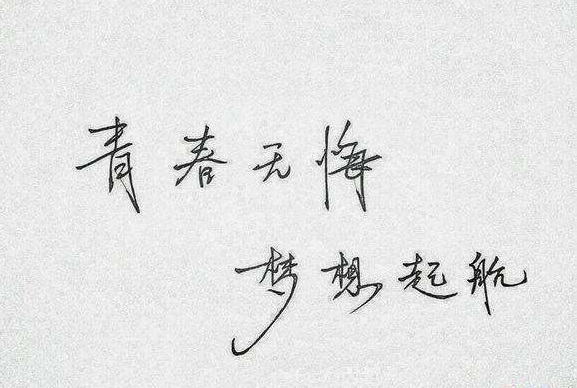 青春无悔
梦想起航